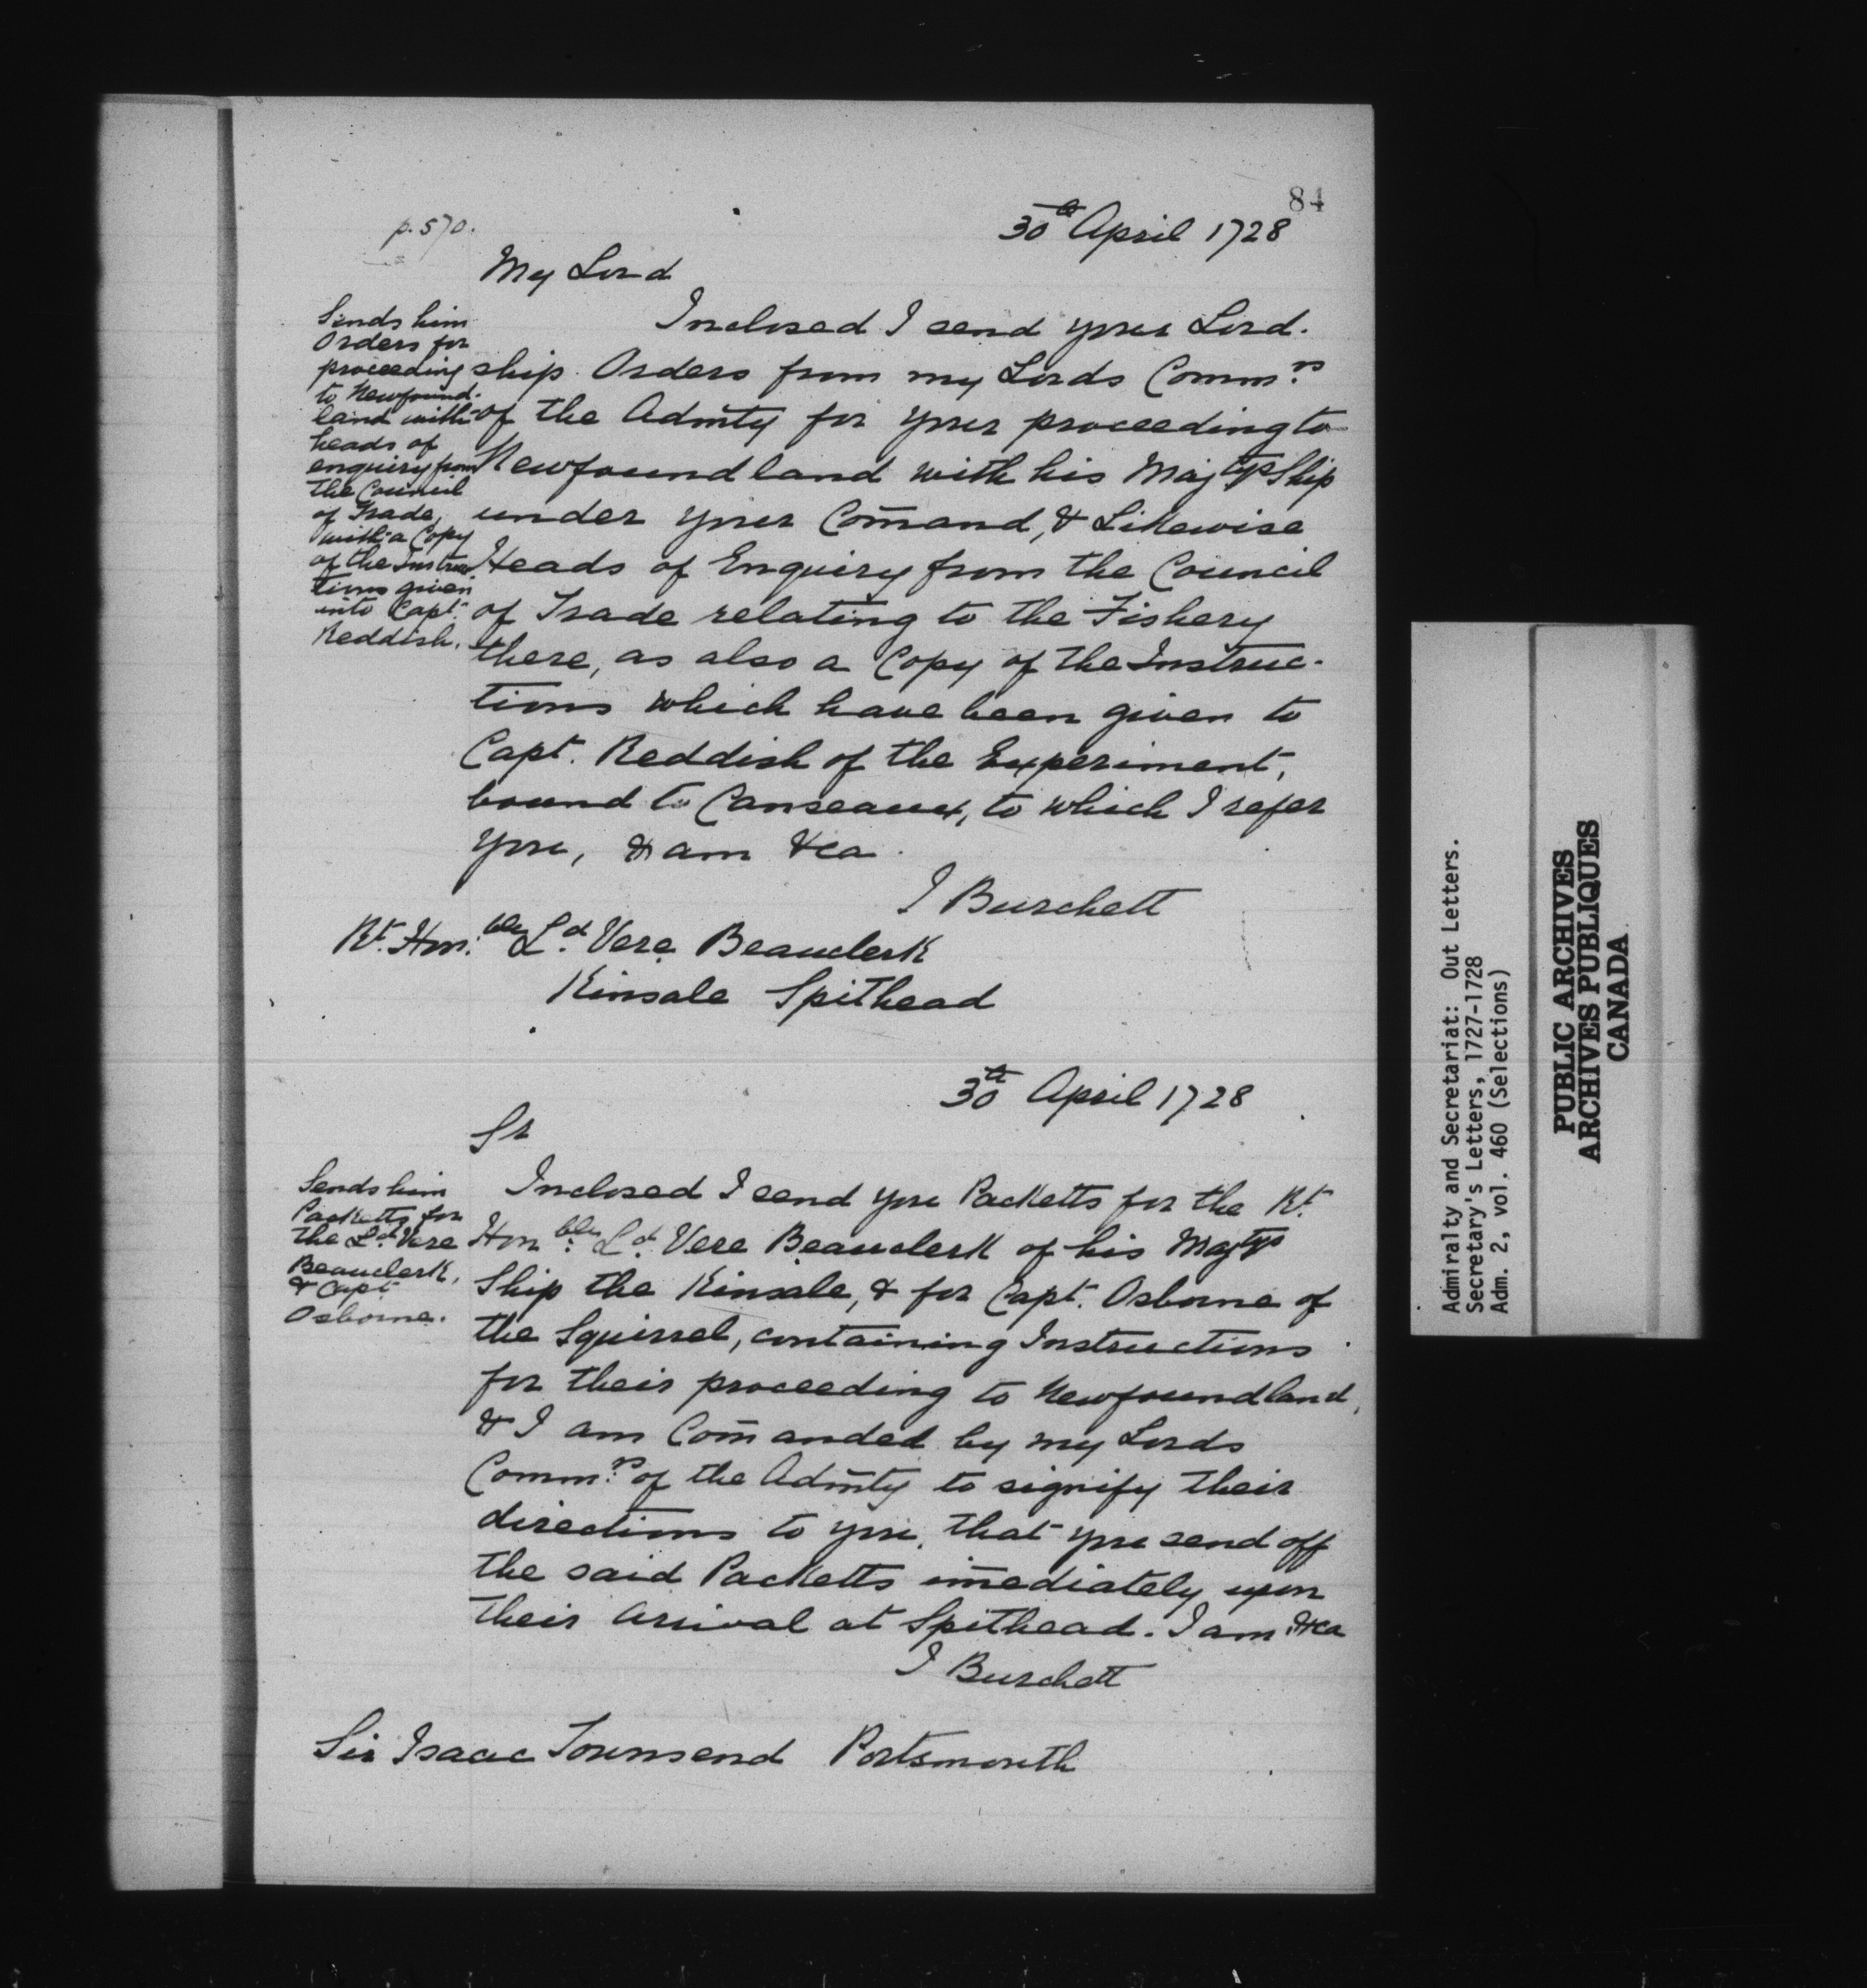 84
p. 570.
30th April 1728
My Lord
Sends him
Orders for
proceeding
to Newfound-
land with
heads of
enquiry from
the Council
of Trade,
with a Copy
of the Instruc
tions given
into Capt.
Reddish.
Inclosed I send your Lord-
ship Orders from my Lords Commrs
of the Admty for your proceeding to
Newfoundland with his Majtys Ship
under your Com̄and, & Likewise
Heads of Enquiry from the Council
of Trade relating to the Fishery
there, as also a Copy of the Instruc-
tions which have been given to
Capt. Reddish of the Experiment,
bound to Canseaux, to which I refer
you, & am &ca.
J Burchett
Rt. Honble Ld. Vere Beauclerk
Kinsale Spithead
30th April 1728
Sr
Sends him
Packetts for
the Ld. Vere
Beauclerk,
& Capt
Osborne.
Inclosed I send you Packetts for the Rt.
Honble Ld. Vere Beauclerk of his Majtys
Ship the Kinsale, & for Capt. Osborne of
the Squirrel, containing Instructions
for their proceeding to Newfoundland,
& I am Com̄anded by my Lords
Commrs of the Admty to signify their
directions to you, that you send off
the said Packetts im̄ediately upon
their arrival at Spithead. I am &ca
J Burchett
Sir Isaac Townsend Portsmouth
Admiralty and Secretariat: Out Letters.
Secretary's Letters, 1727-1728
Adm. 2, vol. 460 (Selections)
PUBLIC ARCHIVES
ARCHIVES PUBLIQUES
CANADA